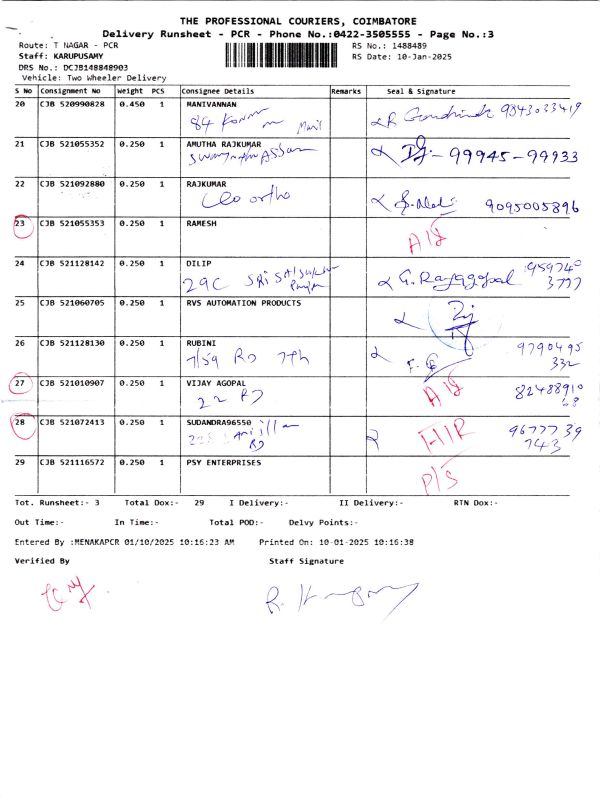 THE PROFESSIONAL COURIERS, COIMBATORE
Delivery Runsheet - PCR - Phone No.:0422-3505555 - Page No.:3
Route: T NAGAR - PCR RS No.: 1488489
Staff: KARUPUSAMY RS Date: 10-Jan-2025
DRS No.: DCJB148848903
Vehicle: Two Wheeler Delivery
S No Consignment No Weight PCS Consignee Details Remarks Seal & Signature
20 CJB 520990828 0.450 1 MANIVANNAN
84 9843033419
21 CJB 521055352 0.250 1 AMUTHA RAJKUMAR
99945-99933
22 CJB 521092880 0.250 1 RAJKUMAR
ortho 9095005896
23 CJB 521055353 0.250 1 RAMESH
24 CJB 521128142 0.250 1 DILIP
29C SRI G. Rajagopal 959740
3777
25 CJB 521060705 0.250 1 RVS AUTOMATION PRODUCTS
26 CJB 521128130 0.250 1 RUBINI
7/59 RD 7th 9790495
332
27 CJB 521010907 0.250 1 VIJAY AGOPAL
22 RD 82488910
68
28 CJB 521072413 0.250 1 SUDANDRA96550
RD 9677739
743
29 CJB 521116572 0.250 1 PSY ENTERPRISES
P/S
Tot. Runsheet:- 3 Total Dox:- 29 I Delivery:- II Delivery:- RTN Dox:-
Out Time:- In Time:- Total POD:- Delvy Points:-
Entered By :MENAKAPCR 01/10/2025 10:16:23 AM Printed On: 10-01-2025 10:16:38
Verified By Staff Signature